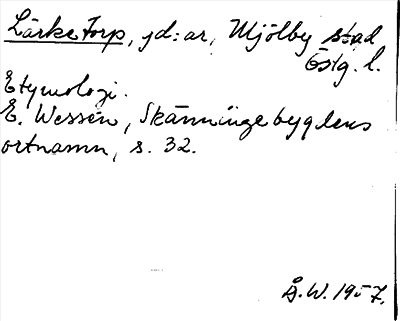 Lärketorp, jd:ar, Mjölby stad
Östg. l.
Etymologi.
E. Wessén, Skänningebygdens
ortnamn, s. 32.
Å.W. 1957.